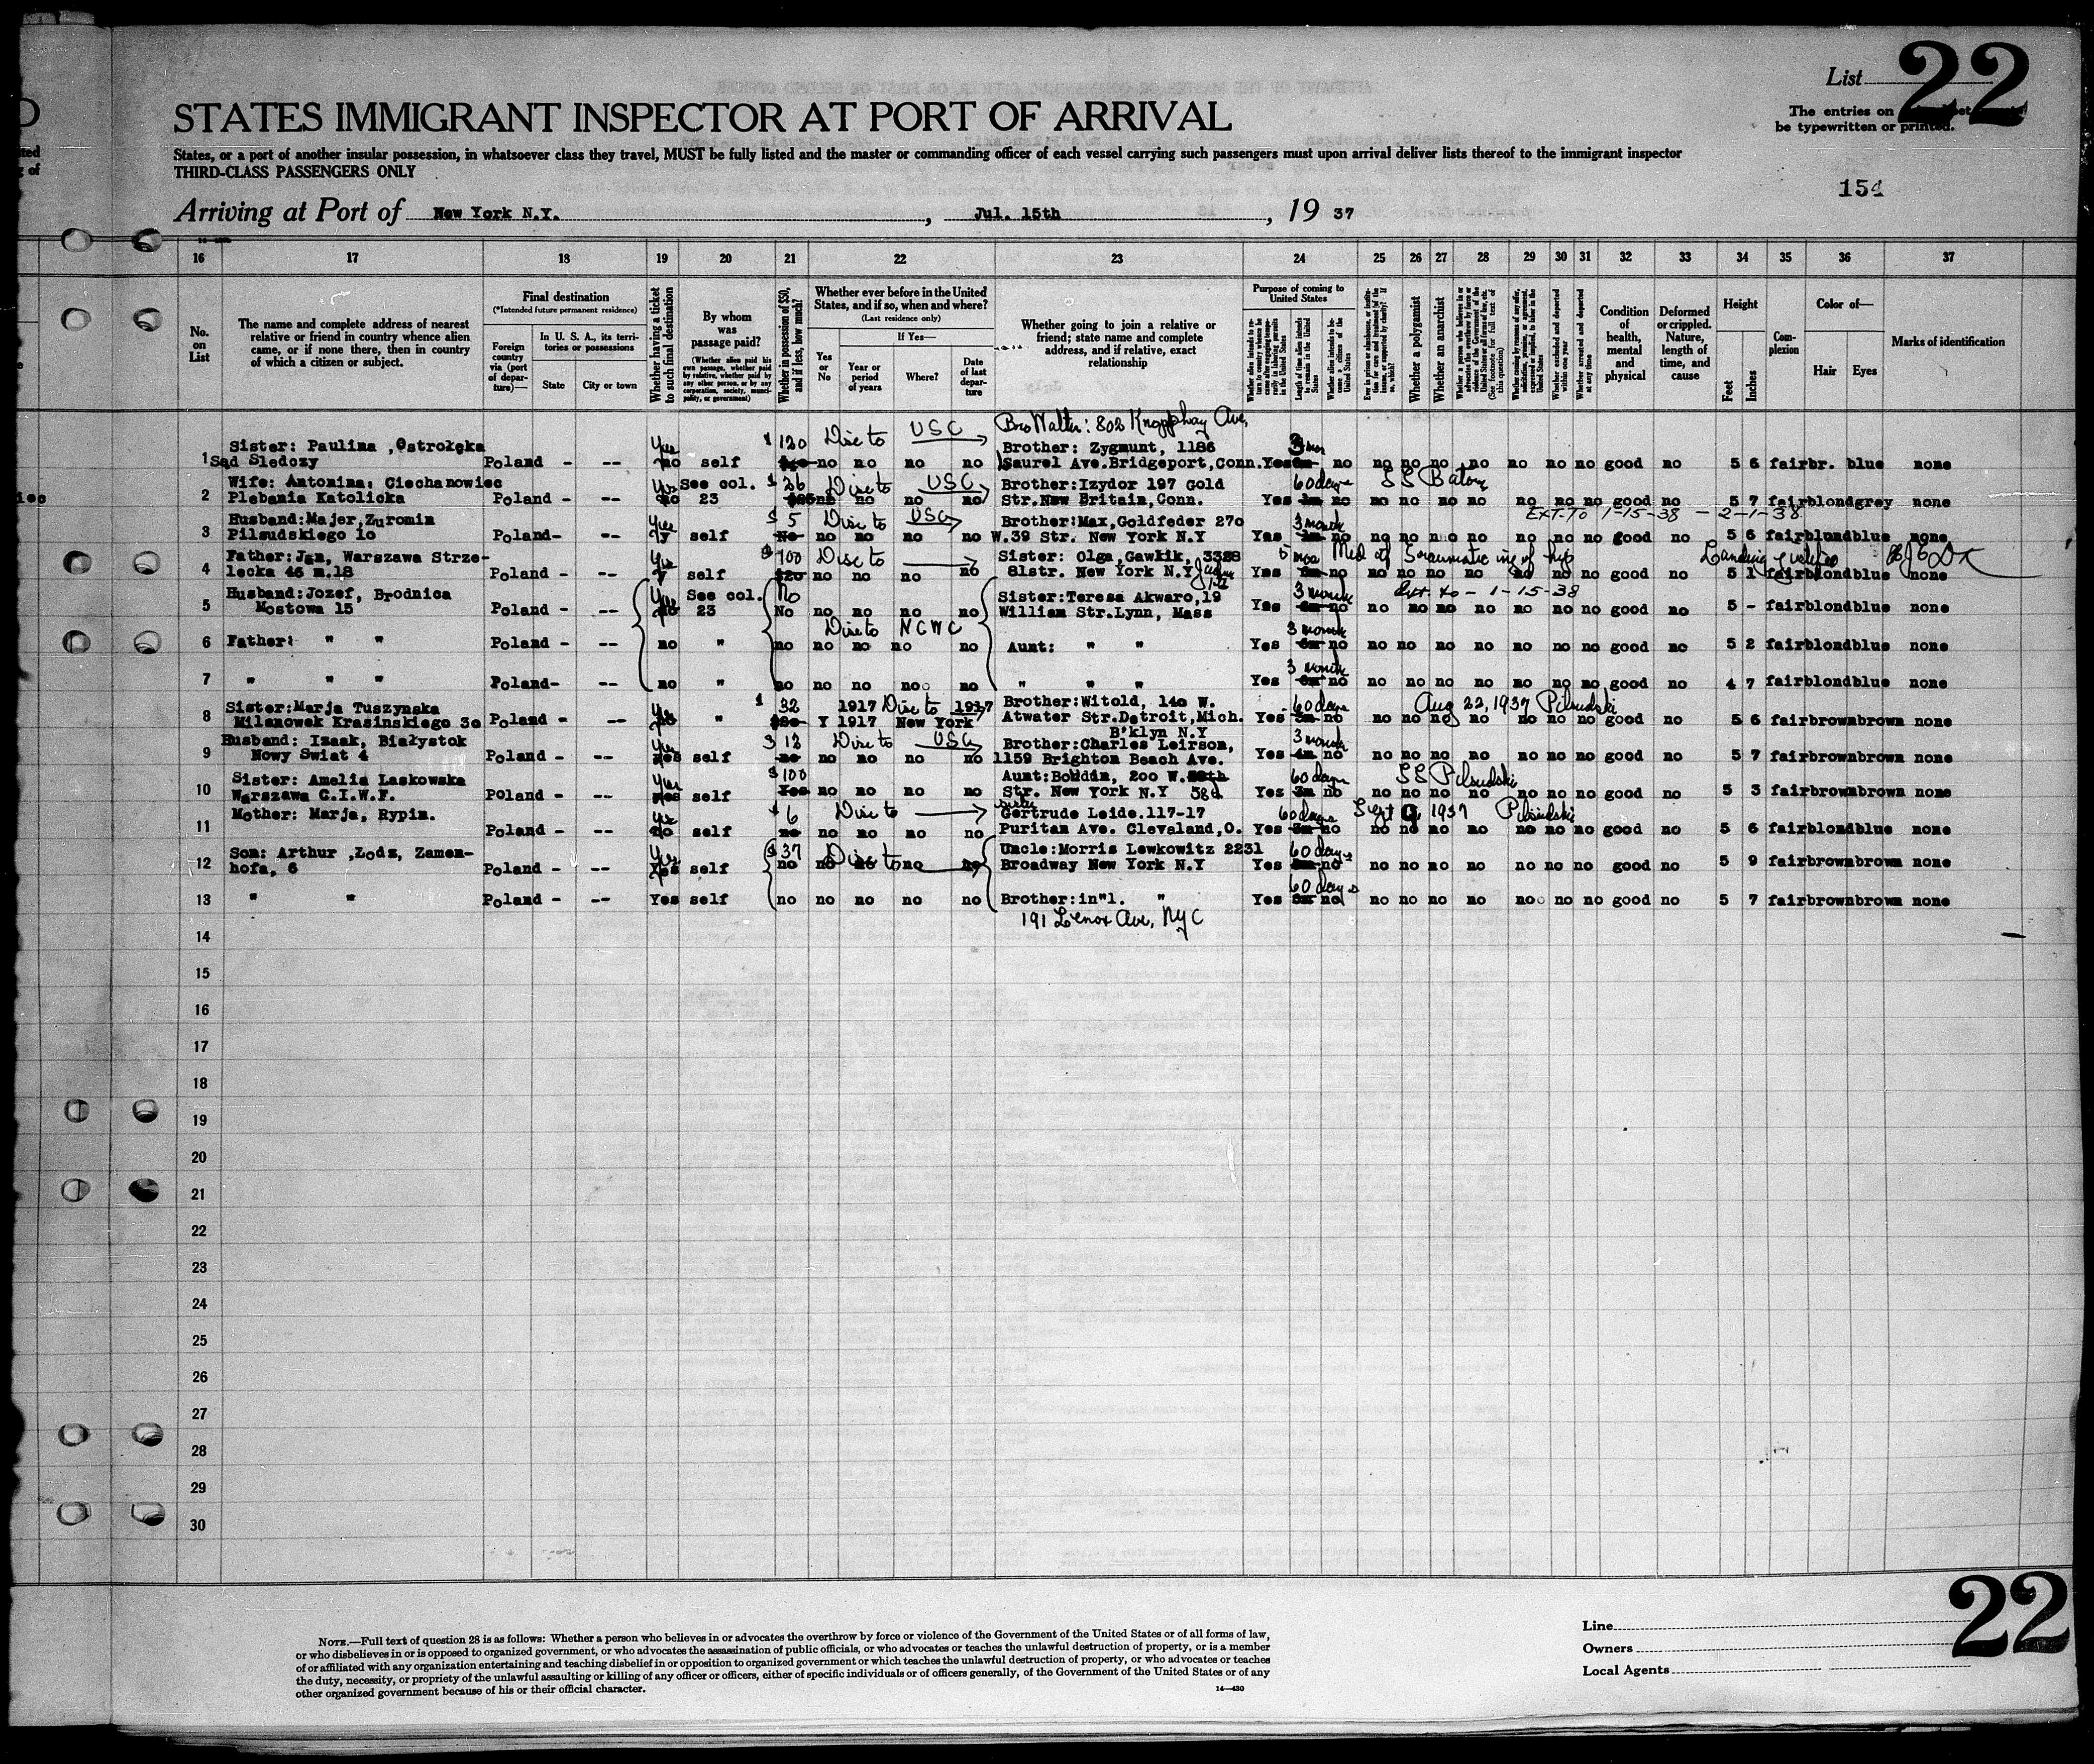 List 22
The entries on
be typewritten or printed.
STATES IMMIGRANT INSPECTOR AT PORT OF ARRIVAL
States, or a port of another insular possession, in whatsoever class they travel, MUST be fully listed and the master or commanding officer of each vessel carrying such passengers must upon arrival deliver lists thereof to the immigrant inspector
THIRD-CLASS PASSENGERS ONLY
154
Arriving at Port of New York N.Y. , Jul. 15th , 19 37
16 17 18 19 20 21 22 23 24 25 26 27 28 29 30 31 32 33 34 35 36 37
No. on List
The name and complete address of nearest relative or friend in country whence alien came, or if none there, then in country of which a citizen or subject.
Final destination
(*Intended future permanent residence)
Foreign country via (port of departure)—
In U. S. A., its territories or possessions
State
City or town
Whether having a ticket to such final destination
By whom was passage paid?
(Whether alien paid his own passage, whether paid by relative, whether paid by any other person, or by any corporation, society, municipality, or government)
Whether in possession of $50, and if less, how much?
Whether ever before in the United States, and if so, when and where?
(Last residence only)
If Yes—
Yes or No
Year or period of years
Where?
Date of last departure
Whether going to join a relative or friend; state name and complete address, and if relative, exact relationship
Purpose of coming to United States
Length of time alien intends to remain in the United States
Whether alien intends to become a citizen of the United States
Whether a polygamist
Whether an anarchist
Condition of health, mental and physical
Deformed or crippled. Nature, length of time, and cause
Height
Feet
Inches
Complexion
Color of—
Hair
Eyes
Marks of identification
Bro Walter: 802 Ave
Sister: Paulina ,Ostrołęka $ 120 Disc to USC Brother: Zygmunt, 1186 3
1 Sąd Śledczy Poland - -- no self no no no no Ave.Bridgeport,Conn. Yes no no no no no no no no good no 5 6 fair br. blue none
Wife: Antonina: Ciechanowiec Yes See col. $ 26 Disc to USC Brother:Izydor 197 Gold 60 days SS Batory
2 Plebania Katolicka Poland - -- no 23 no no no Str.New Britain,Conn. Yes no no no no no no no no no good no 5 7 fair blond grey none
Husband:Majer,Żuromin Yes $ 5 Disc to USC Brother:Max,Goldfeder 270 3 month EXT-TO 1-15-38 — 2-1-38
3 Pilsudskiego 10 Poland- -- self No no no no no W.39 Str. New York N.Y Yes no no no no no no no no good no 5 6 fair blond blue none
Father:Jan, Warszawa Strze- Yes $ 100 Disc to Sister: Olga,Gawlik, 3328
4 lecka 46 m.18 Poland - -- self $20 no no no no 81str. New York N.Y Yes no no no no no no no no good no 5 1 fair blond blue none
Husband:Jozef, Brodnica Yes See col. No Sister:Teresa Akwaro,19 3 month Ext. to - 1-15-38
5 Mostowa 15 Poland - -- no 23 No no no no no William Str.Lynn, Mass Yes no no no no no no no no good no 5 - fair blond blue none
Disc to NCWC 3 month
6 Father: " " Poland - -- no " no no no no no Aunt: " " Yes no no no no no no no no good no 5 2 fair blond blue none
3 month
7 " " " Poland- -- no " no no no no no " " " Yes no no no no no no no no good no 4 7 fair blond blue none
Sister:Marja Tuszynska $ 32 1917 Disc to 1917 Brother:Witold, 140 W. 60 days Aug 22, 1937 Pilsudski
8 Milanowek Krasinskiego 30 Poland - -- no " Y 1917 New York Atwater Str.Detroit,Mich. Yes no no no no no no no no good no 5 6 fair brown brown none
B'klyn N.Y
Husband: Izaak, Białystok Yes $ 12 Disc to USC Brother:Charles Leirson, 3 month
9 Nowy Swiat 4 Poland - -- Yes self no no no no no 1159 Brighton Beach Ave. Yes no no no no no no no no good no 5 7 fair brown brown none
Sister: Amelia Laskowska Yes $ 100 Aunt:Boudin, 200 W. 60 days SS Pilsudski
10 Warszawa C.I.W.F. Poland - -- Yes self Yes no no no no Str. New York N.Y 58th Yes no no no no no no no no good no 5 3 fair brown brown none
Mother: Marja, Rypin. Yes $ 6 Disc to sister Gertrude Leide.117-17 60 days Sept 9, 1937 Pilsudski
11 Poland - -- no self no no no no no Puritan Ave. Cleveland,O. Yes no no no no no no no no good no 5 6 fair blond blue none
Son: Arthur ,Łodz, Zamen- Yes $ 37 Disc to Uncle:Morris Lewkowitz 2231 60 days
12 hofa, 6 Poland - -- Yes self no no no no no Broadway New York N.Y Yes no no no no no no no no good no 5 9 fair brown brown none
60 days
13 " " Poland - -- Yes self no no no no no Brother:in"l. " Yes no no no no no no no no good no 5 7 fair brown brown none
191 Lenox Ave, NYC
14
15
16
17
18
19
20
21
22
23
24
25
26
27
28
29
30
22
NOTE.—Full text of question 28 is as follows: Whether a person who believes in or advocates the overthrow by force or violence of the Government of the United States or of all forms of law,
or who disbelieves in or is opposed to organized government, or who advocates the assassination of public officials, or who advocates or teaches the unlawful destruction of property, or is a member
of or affiliated with any organization entertaining and teaching disbelief in or opposition to organized government or which teaches the unlawful destruction of property, or who advocates or teaches
the duty, necessity, or propriety of the unlawful assaulting or killing of any officer or officers, either of specific individuals or of officers generally, of the Government of the United States or of any
other organized government because of his or their official character.
14—430
Line
Owners
Local Agents